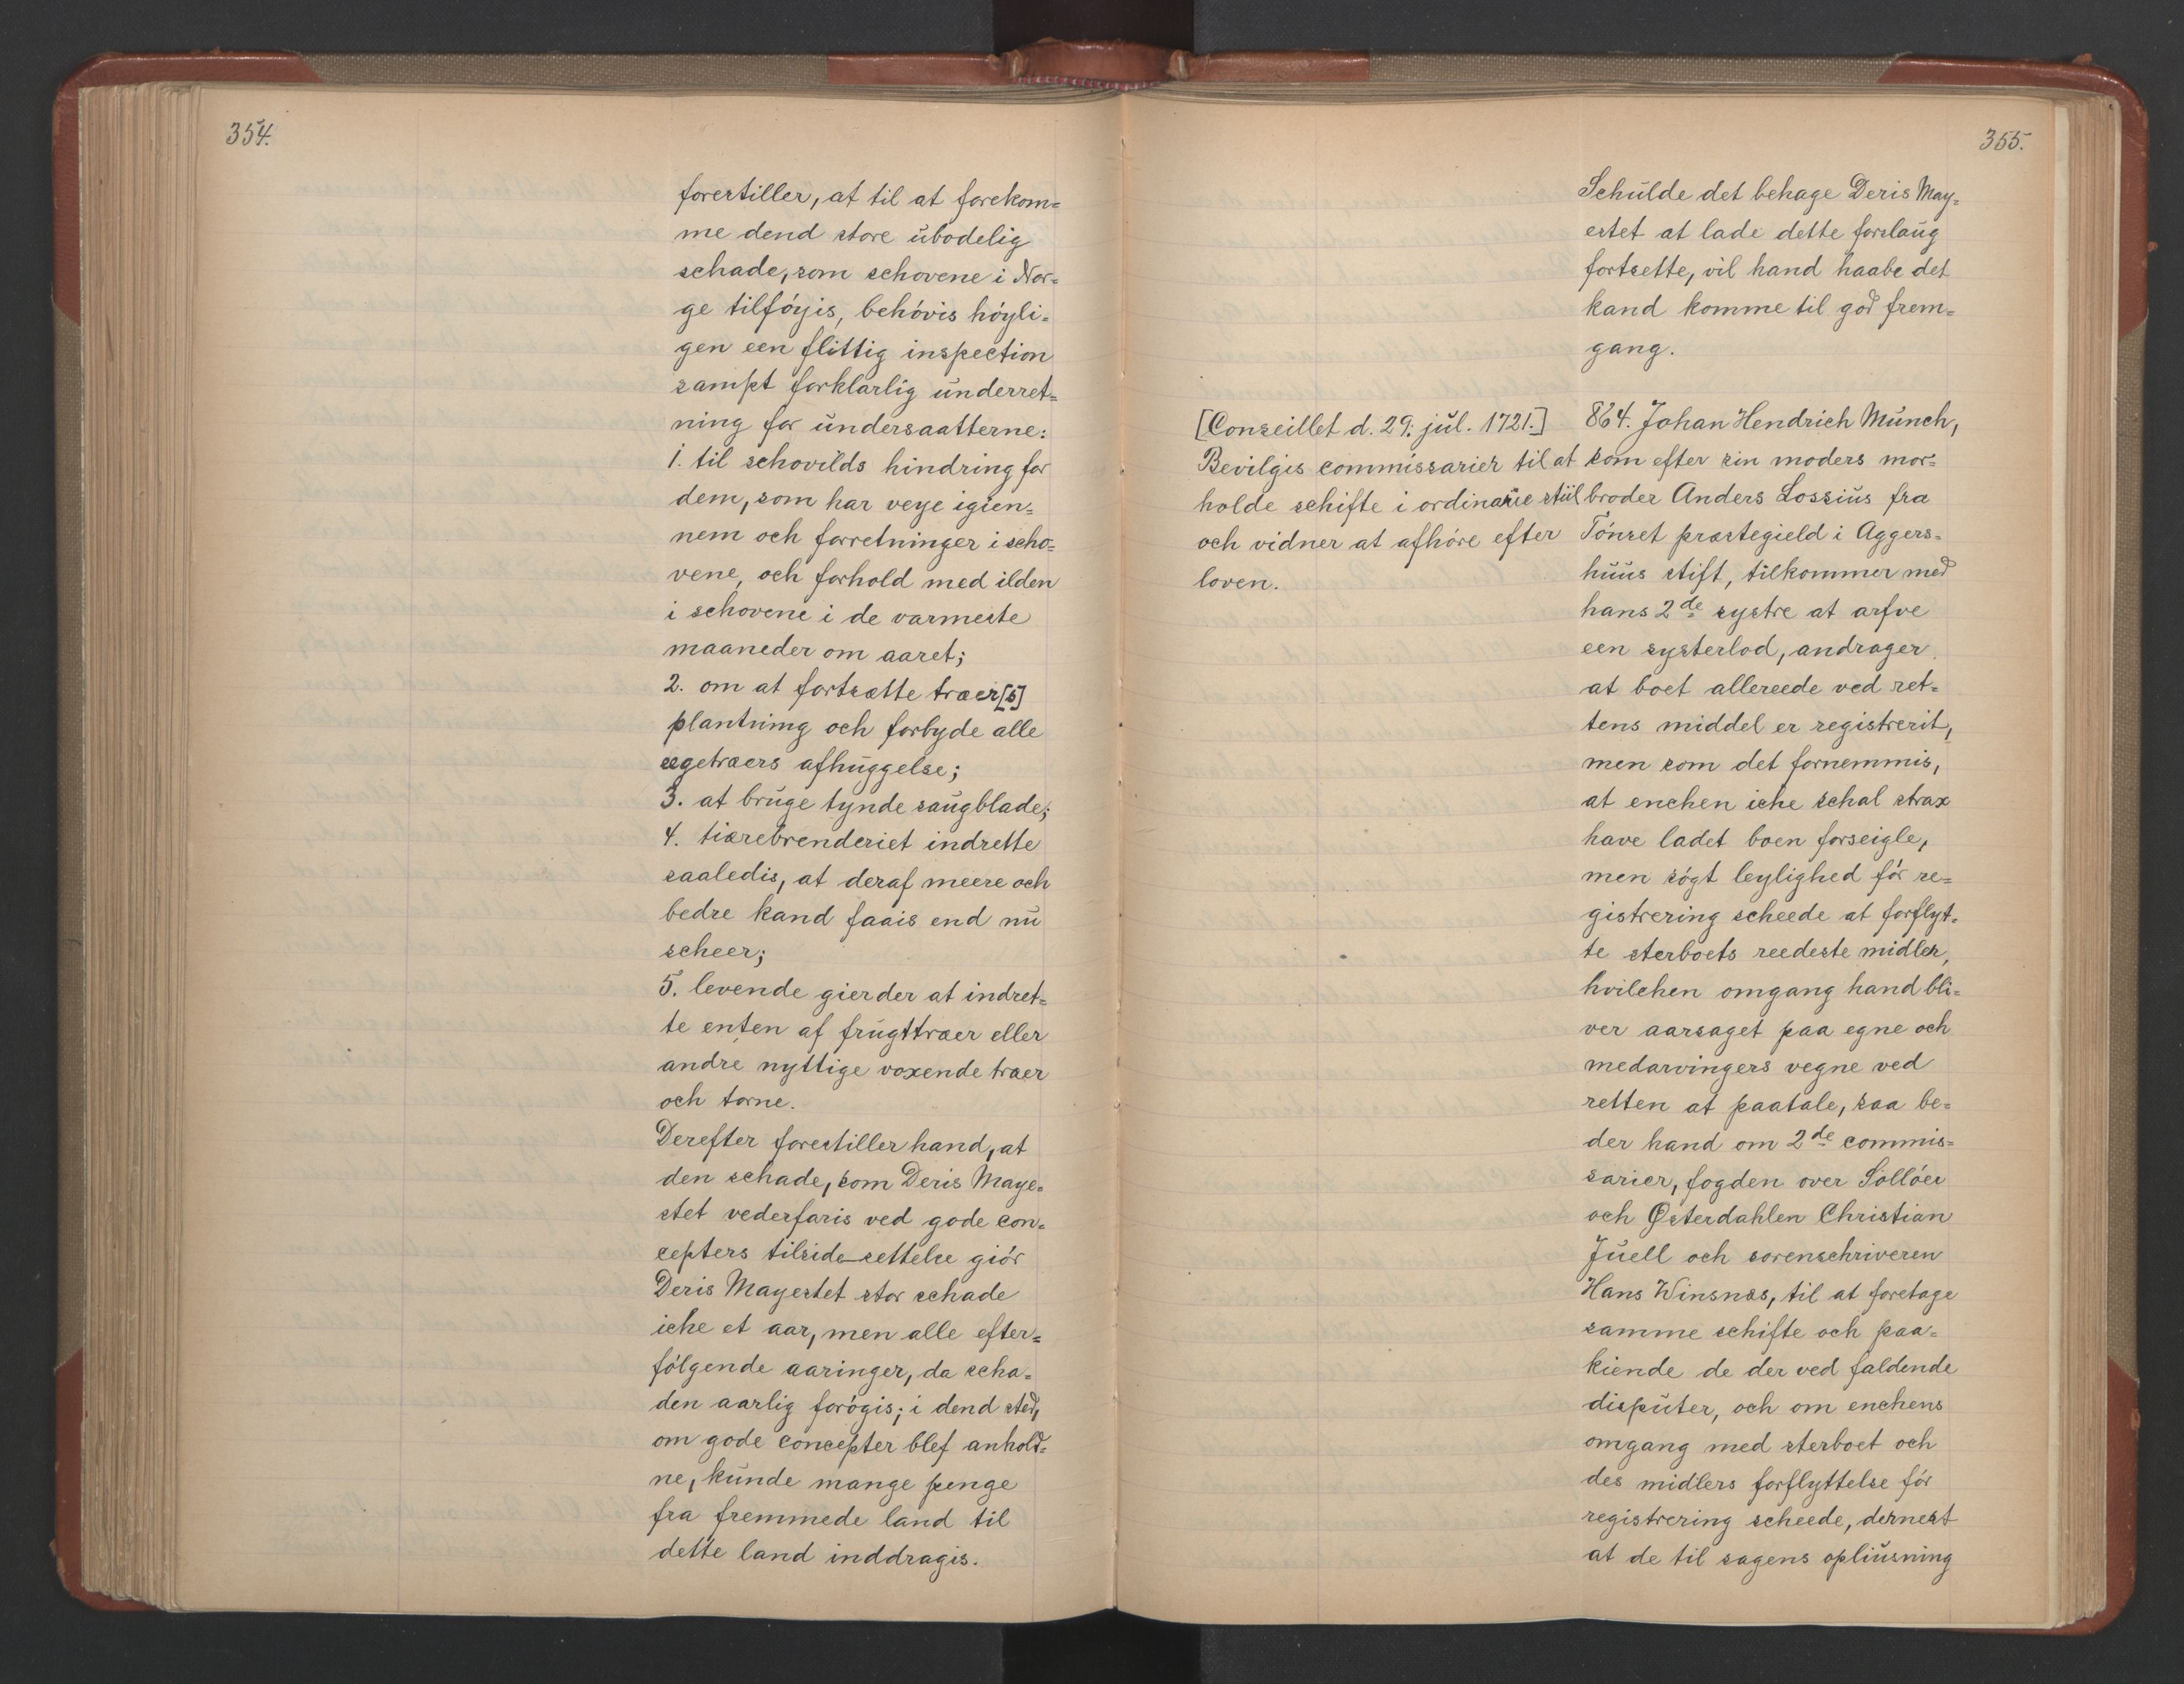 354.
forestiller, at til at forekom=
me dend store ubodelig
schade, som schovene i Nor=
ge tilföyis, behövis höyli=
gen een flittig inspection
sampt forklarlig underret=
ning for undersaatterne:
1. til schovilds hindring for
dem, som har veye igien=
nem och forretninger i scho=
vene, och forhold med ilden
i schovene i de varmeste
maaneder om aaret;
2. om at fortsætte træer[s]
plantning och forbyde alle
egetræers afhuggelse;
3. at bruge tynde saugblade;
4. tiærebrenderiet indrette
saaledis, at deraf meere och
bedre kand faais end nu
scheer;
5. levende gierder at indret=
te enten af frugttræer eller
andre nyttige voxende træer
och torne.
Derefter forestiller hand, at
den schade, som Deris Maye=
stet vederfaris ved gode con=
cepters tilsidesettelse giör
Deris Mayestet stor schade
iche et aar, men alle efter=
fölgende aaringer, da scha=
den aarlig forögis; i dend sted,
om gode concepter blef anhold=
ne, kunde mange penge
fra fremmede land til
dette land inddragis.
355.
Schulde det behage Deris May=
estet at lade dette forslaug
fortsette, vil hand haabe det
kand komme til god frem=
gang.
[Conseillet d. 29. jul. 1721.]
Bevilgis commissarier til at
holde schifte i ordinarie stiil
och vidner at afhöre efter
loven.
864. Johan Hendrich Munch,
som efter sin moders mor=
broder Anders Lossius fra
Tönset præstegield i Aggers=
huus stift, tilkommer med
hans 2de systre at arfve
een systerlod, andrager
at boet allereede ved ret=
tens middel er registrerit,
men som det fornemmis,
at enchen iche schal strax
have ladet boen forseigle,
men sögt leylighed för re=
gistrering scheede at forflyt=
te sterboets reedeste midler,
hvilchen omgang hand bli=
ver aarsaget paa egne och
medarvingers vegne ved
retten at paatale, saa be=
der hand om 2de commis=
sarier, fogden over Sollöer
och Østerdahlen Christian
Juell och sorenschriveren
Hans Winsnes, til at foretage
samme schifte och paa=
kiende de der ved faldende
disputer, och om enchens
omgang med sterboet och
des midlers forflyttelse för
registrering scheede, dernest
at de til sagens opliusning